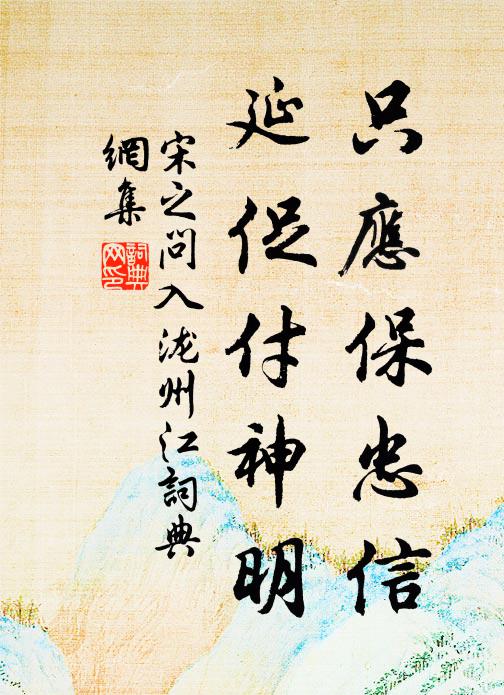 只應保忠信
延促付神明
宋之問入泷州江詞典
網集
詞典
网印